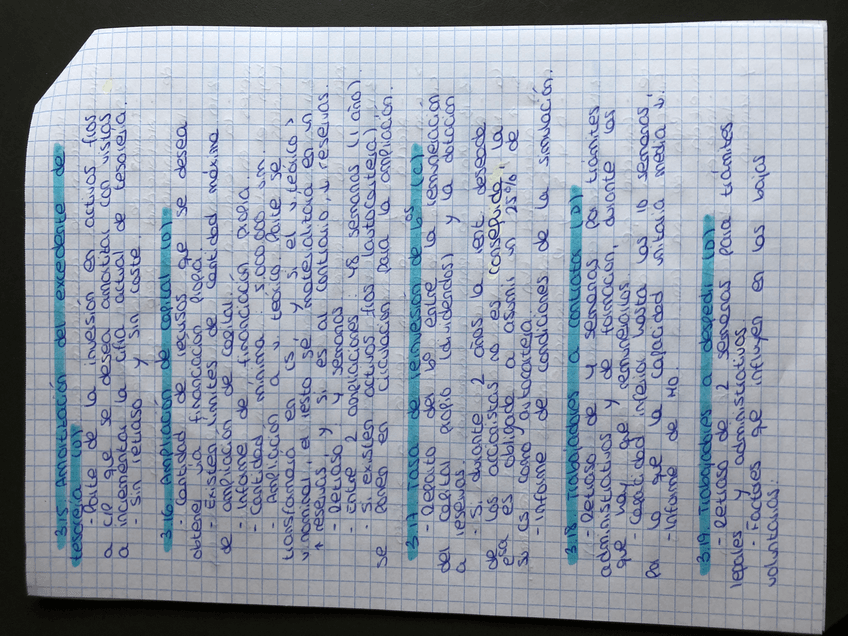 3.15 Amortización del excedente de
tesorería (D)
- Parte de la inversión en activos fijos
a c/p que se desea amortizar con vistas
a incrementar la cifra actual de tesorería.
- Sin retraso y sin coste.
3.16 Ampliación de capital (D)
- Cantidad de recursos que se desea
obtener vía financiación propia
- Existen límites de cantidad máxima
de ampliación de capital.
- Informe de financiación propia
- Cantidad mínima: 5.000.000 u.m.
- Ampliación a v. teórico. Parte se
transformará en cs, y si el v. teórico >
v. nominal, el resto se materializará en un
↑ reservas y si es al contrario, ↓ reservas.
- Retraso: 4 semanas
- Entre 2 ampliaciones: 48 semanas (1 año).
- Si existen activos fijos (autocartera)
se ponen en circulación para la ampliación.
3.17 Tasa de reinversión de bº (C)
- Reparto del bº entre la remuneración
del capital propio (dividendos) y la dotación
a reservas.
- Si durante 2 años la rent. deseada
de los accionistas no es conseguida, la
esa es obligada a asumir un 25% de
su cs como autocartera
- Informe de condiciones de la simulación.
3.18 Trabajadores a contratar (D)
- Retraso de 4 semanas por trámites
administrativos y de formación, durante las
que hay que remunerarlos
- Capacidad inferior hasta las 10 semanas,
por lo que la capacidad unitaria media ↓.
- Informe de MO.
3.19 Trabajadores a despedir (D)
- Retraso de 2 semanas para trámites
legales y administrativos
- Factores que influyen en las bajas
voluntarias: